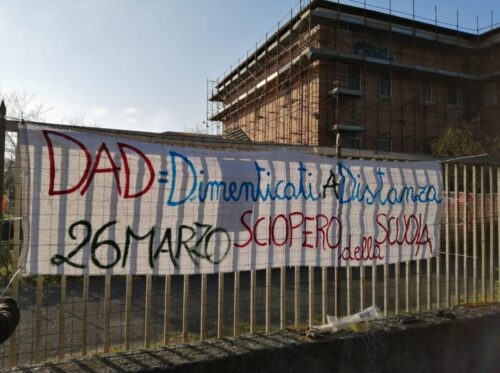 DAD = Dimenticati A Distanza
26 MARZO SCIOPERO della SCUOLA